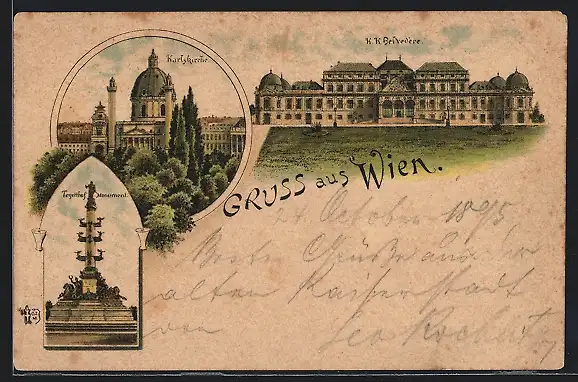 Karlskirche.
K. K. Belvedere.
Tegetthof Monument.
GRUSS aus Wien.
24. October 1895
Beste Grüße aus der
alten Kaiserstadt
von Leo